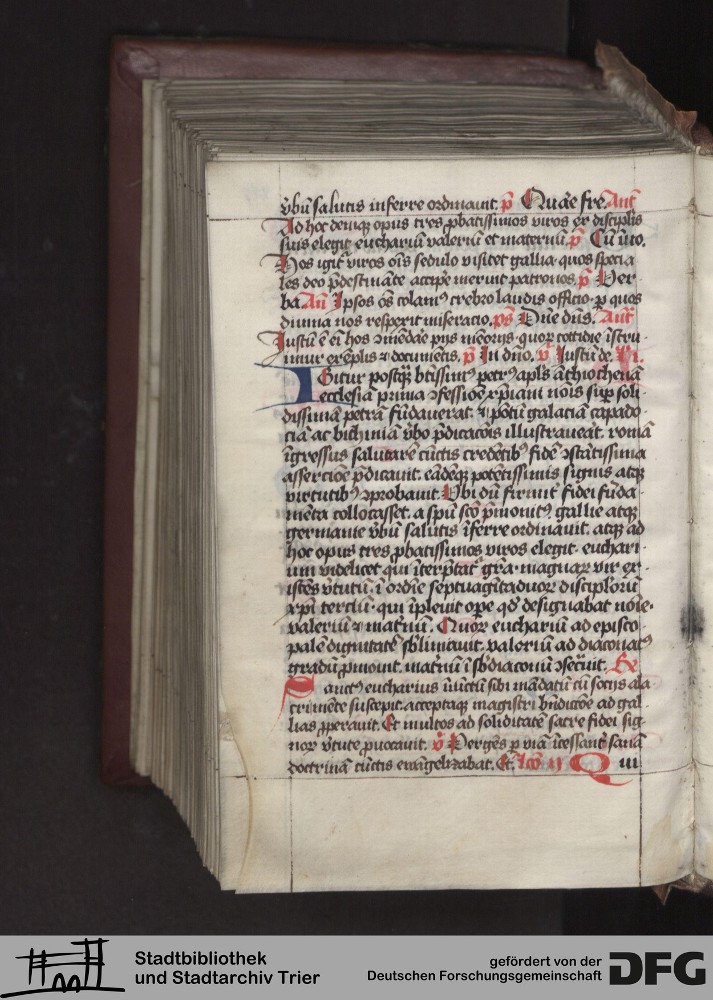 v̄bū salutis inferre ordinauit. p̄ Quāe fre. Añt
Ad hoc deniqꝫ opus tres ꝓbatissimos viros ex disciplis
suis elegit euchariū valeriū et maternū. p̄ Cū īuo.
Hos igit᷑ viros oīs sedulo visitet gallia quos specia
les deo p̄destināte accipe meruit patronos. p̄ Ver
ba. Añ Ipsos oēs colam᷒ crebro laudis officio ꝑ quos
diuina nos respexit miseracio. ps Dn̄e dn̄s. Añt
Iustū ē eī hos ɔmēdāe pijs mēorijs quoꝝ cottidie īstru
imur exēplis ⁊ documētis. p̄ In dn̄o. v̄ Iustū de.
Igitur postq̄ꝫ btissim᷒ petr᷒ apl̄s āthiochenā
ecclesiā prima ɔfessiōe xp̄iani nōis suꝑ soli
dissimā petrā fūdauerat. ⁊ pōti galaciā capado
ciā ac bithiniā v̄bo p̄dicacōis illustraueat. romā
īgressus salutarē cūctis credētib᷒ fidē ɔstātissima
assercōe p̄dicauit. eādēqꝫ potētissimis signis atqꝫ
virtutib᷒ ɔprobauit. Vbi dū firmit᷑ fidei fūda
mēta collocasset. a spū scō p̄monit᷒ gallie atqꝫ
germanie v̄bū salutis īferre ordinauit. atqꝫ ad
hoc opus tres ꝓbatissimos viros elegit. euchari
um videlicet qui īterp̄tat᷑ gr̄a magnaꝝ vir ex
istēs v̄tutū. ī ordīe septuagītaduoꝝ discipl̓orū
xp̄i terciū. qui īpleuit oꝑe qd̓ designabat nōīe.
valeriū ⁊ mat̓nū. Quoꝝ euchariū ad episco
palē dignitatē sb̓limauit. valeriū ad diaconat᷒
gradū ꝓmouit. mat̓nū ī sb̓diaconū ɔsec̓uit. Re
Sanct᷒ eucharius iūctū sibi mādatū cū socijs ala
crimēte suscepit. acceptaqꝫ magistri bn̄dicōe ad gal
lias ꝓperauit. Et multos ad soliditatē sacre fidei sig
noꝝ v̓tute ꝓuocauit. v̄ Pergēs ꝑ viā īcessāt᷑ sanā
doctrinā cūctis ewāgelizabat. Et. Lcō ij Qui
Stadtbibliothek
und Stadtarchiv Trier
gefördert von der
Deutschen Forschungsgemeinschaft DFG